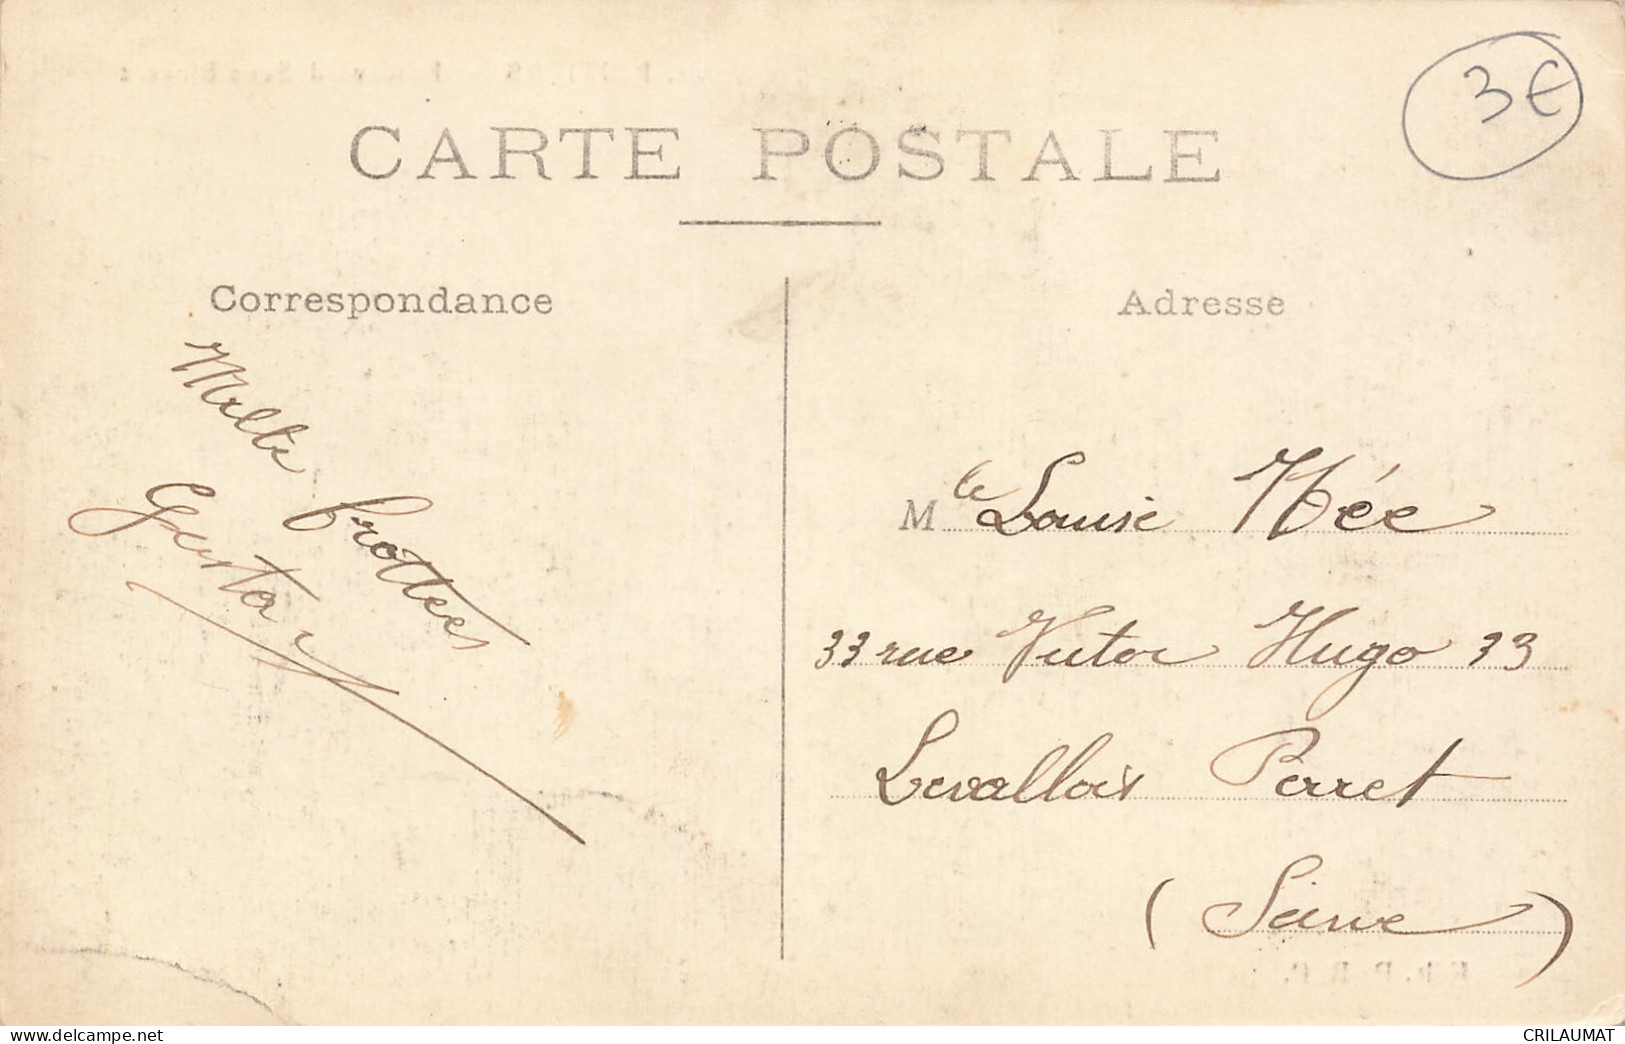 3€
CARTE POSTALE
Correspondance
Mille
frottées
Gustav
Adresse
Mlle Louise Hée
33 rue Victor Hugo 33
Levallois Perret
(Seine)
www.delcampe.net
CRILAUMAT